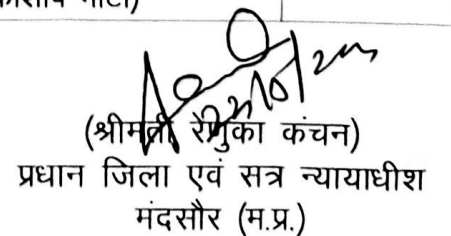 (श्रीमती रेणुका कंचन)
प्रधान जिला एवं सत्र न्यायाधीश
मंदसौर (म.प्र.)